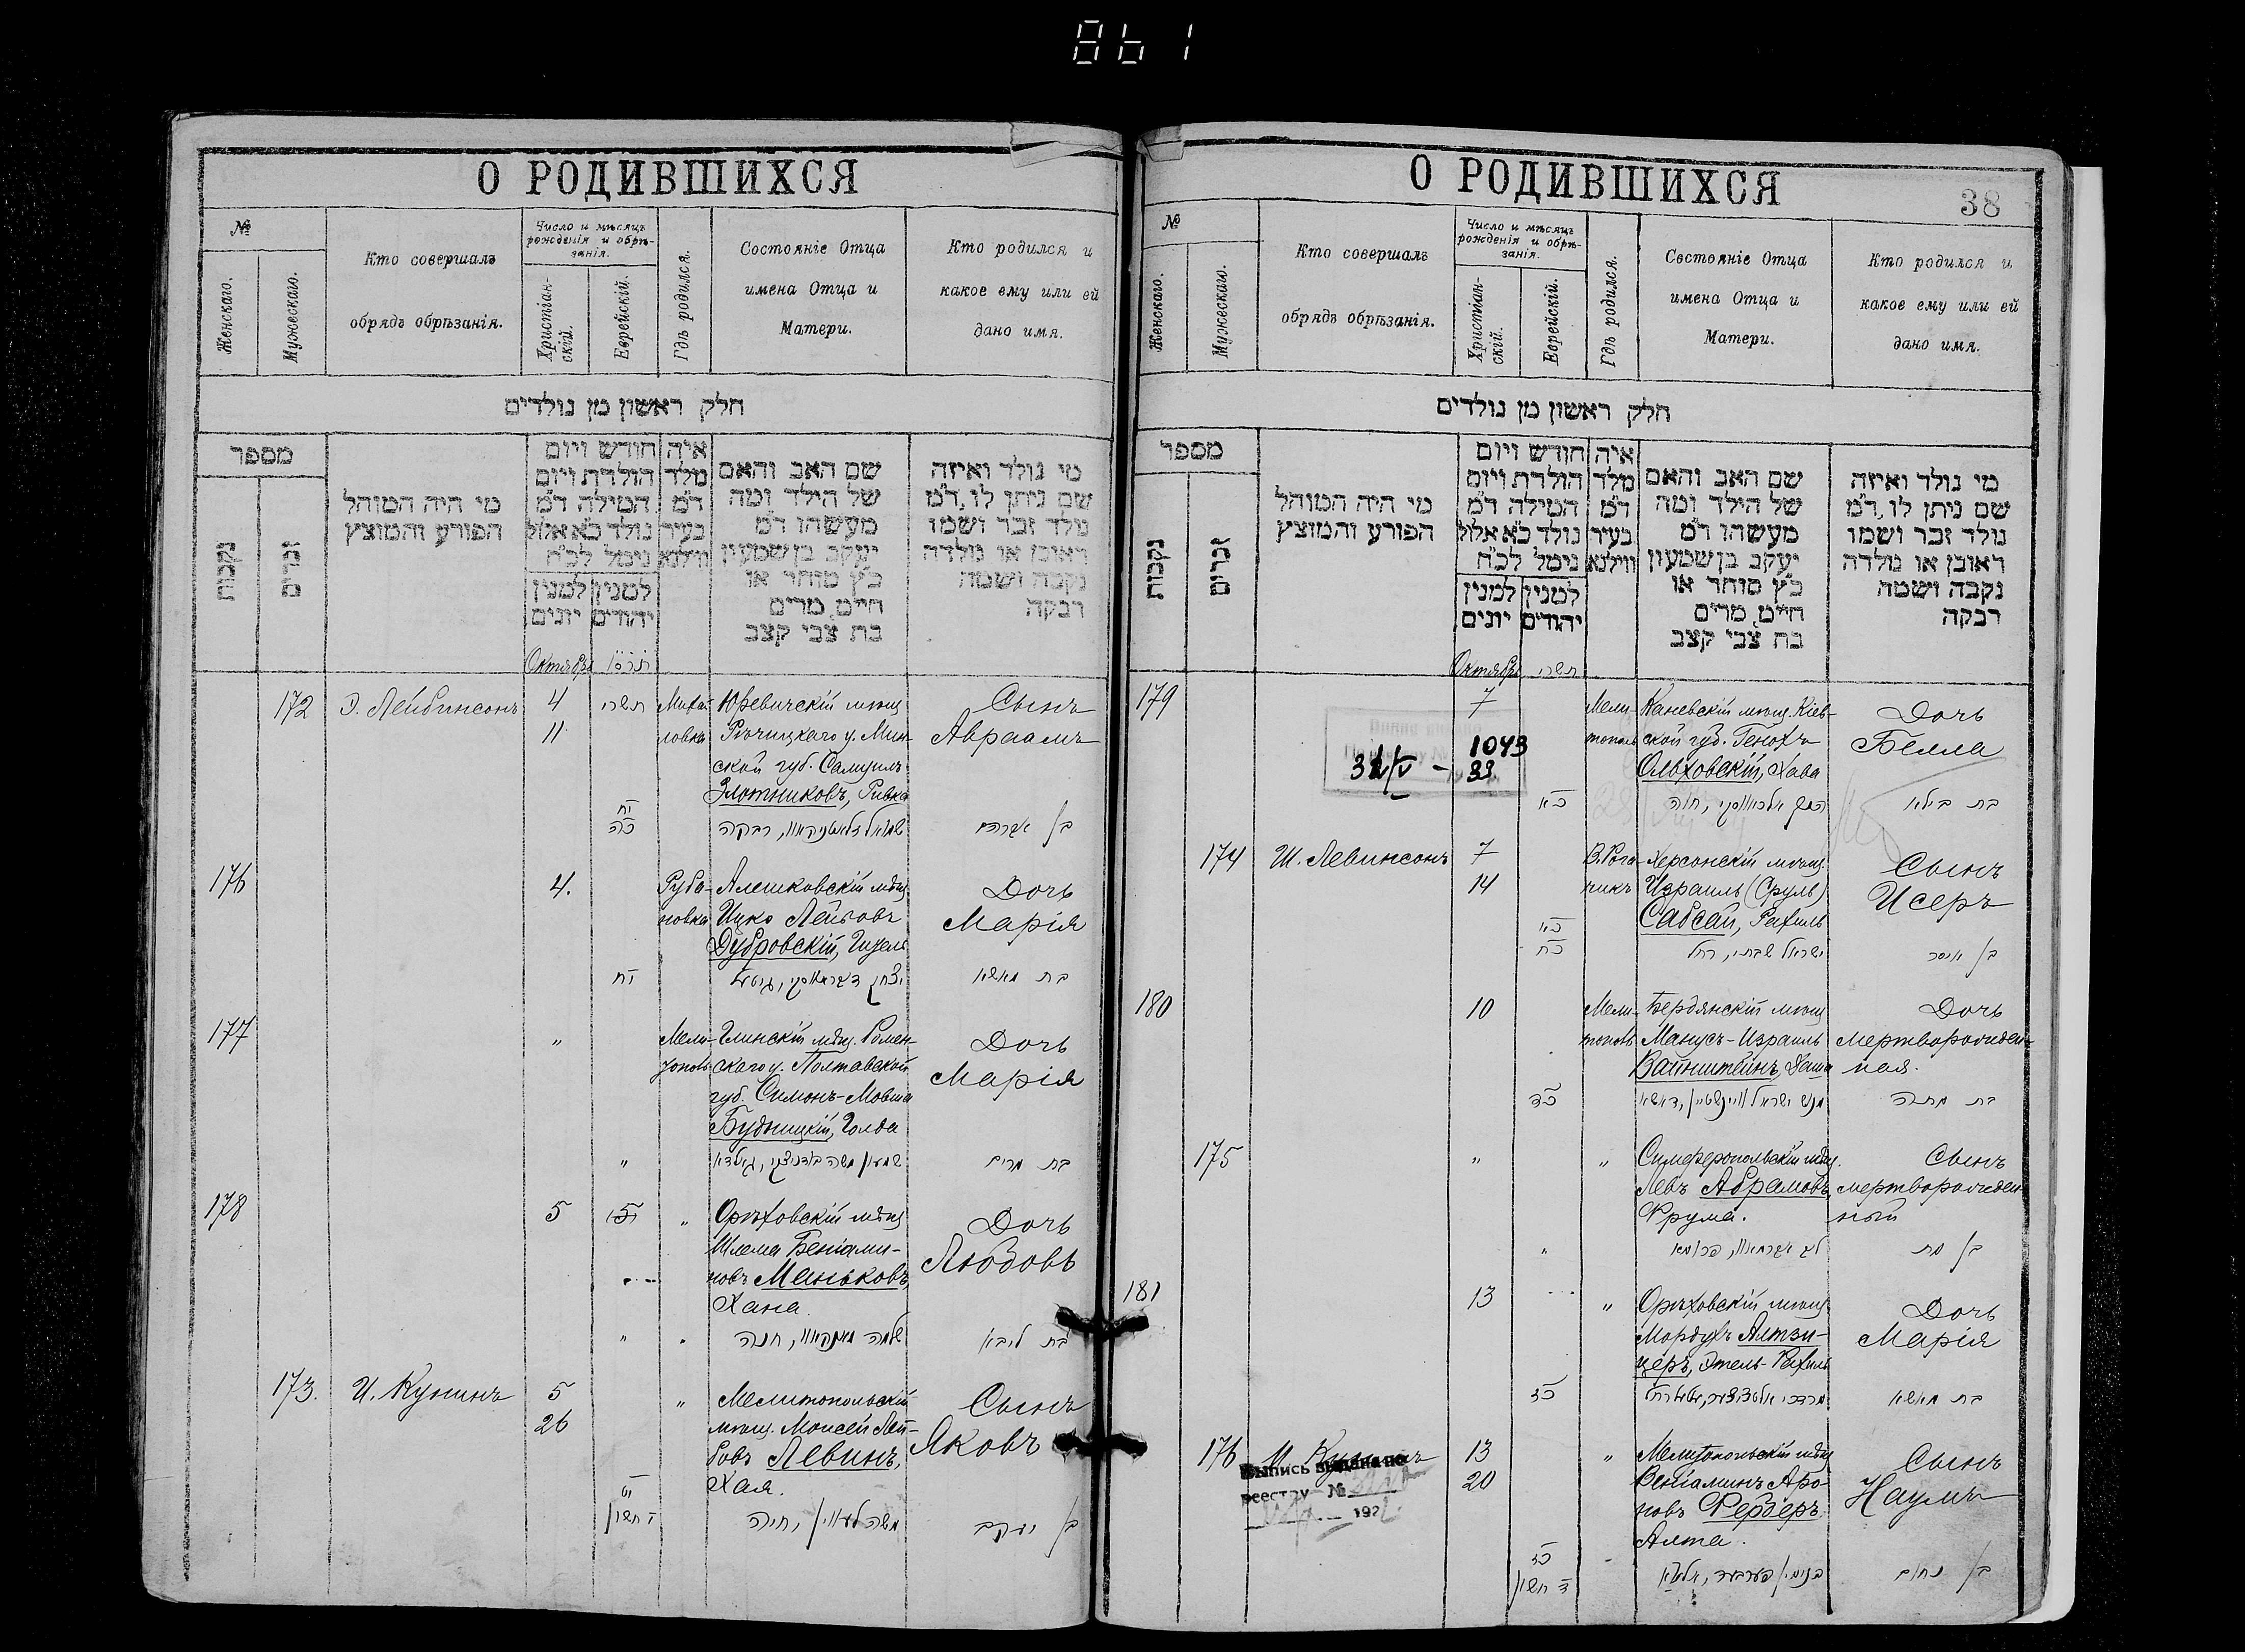 861
О РОДИВШИХСЯ
№
Женскаго.
Мужескаго.
Кто совершалъ
обрядъ обрѣзанія.
Число и мѣсяцъ
рожденія и обрѣ-
занія.
Христіан-
скій.
Еврейскій.
Гдѣ родился.
Состояніе Отца
имена Отца и
Матери.
Кто родился и
какое ему или ей
дано имя.
חלק ראשון מן נולדים
מספר
נקבות
זכרים
מי היה המוהל
הפורע והמוצץ
חודש ויום
הולדת ויום
המילה ד״מ
נולד כ״א אלול
נימל לכ״ח
למנין למנין
יהודים יונים
איה
מלד
ד״מ
בעיר
ווילנא
שם האב והאם
של הילד ומה
מעשהו ד״מ
יעקב בן שמעון
כ״ץ סוחר או
חיים מרים
בת צבי קצב
מי נולד ואיזה
שם ניתן לו, ד״מ
נולד זכר ושמו
ראובן או נולדה
נקבה ושמה
רבקה
Октябрь
172 Э. Лейбинсонъ 4 תשרי Михай- Юревичскій мѣщ. Сынъ
11 ловка Рѣчицкаго у. Мин- Авраамъ
ской губ. Самуилъ
Злотниковъ, Ривка
יח
כה
רבקה
בן אברהם
176 4. Руба- Алешковскій мѣщ. Дочь
новка Ицко Лейбовъ Марія
Дубровскій, Гизель
יח
בת מאשא
177 " Мели- Глинскій мѣщ. Ромен- Дочь
тополь скаго у. Полтавской Марія
губ. Симонъ-Мовша
Будницкій, Голда
"
בת מרים
178 5 " Орѣховскій мѣщ. Дочь
Шлема Беніами- Любовь
новъ Маньковъ,
Хана.
" שלמה מאנקאוו, חנה
בת ליבא
173. И. Кунинъ 5 " Мелитопольскій Сынъ
26 мѣщ. Моисей Лей- Яковъ
бовъ Левинъ,
Хая.
יט
י חשון
משה לעווין, חיה
בן יעקב
О РОДИВШИХСЯ
38
№
Женскаго.
Мужескаго.
Кто совершалъ
обрядъ обрѣзанія.
Число и мѣсяцъ
рожденія и обрѣ-
занія.
Христіан-
скій.
Еврейскій.
Гдѣ родился.
Состояніе Отца
имена Отца и
Матери.
Кто родился и
какое ему или ей
дано имя.
חלק ראשון מן נולדים
מספר
נקבות
זכרים
מי היה המוהל
הפורע והמוצץ
חודש ויום
הולדת ויום
המילה ד״מ
נולד כ״א אלול
נימל לכ״ח
למנין למנין
יהודים יונים
איה
מלד
ד״מ
בעיר
ווילנא
שם האב והאם
של הילד ומה
מעשהו ד״מ
יעקב בן שמעון
כ״ץ סוחר או
חיים מרים
בת צבי קצב
מי נולד ואיזה
שם ניתן לו, ד״מ
נולד זכר ושמו
ראובן או נולדה
נקבה ושמה
רבקה
Октябрь תשרי
179 7 Мели- Каневскій мѣщ. Кіев- Дочь
тополь ской губ. Генохъ Белла
Ольховскій, Хава
1043
33
כא
חוה
בת בילא
174 Ш. Левинсонъ 7 В. Рога- Херсонскій мѣщ. Сынъ
14 чикъ Израиль (Сруль) Исеръ
Сабсай, Рахиль
כא
כח
ישראל שבתי, רחל
בן איסר
180 10 Мели- Бердянскій мѣщ. Дочь
тополь Манусъ-Израиль мертворожден-
Вайнштейнъ, Даша ная.
כד
מנש ישראל וויינשטיין, דאשא
בת מתה
175 " " Симферопольскій мѣщ. Сынъ
Левъ Абрамовъ, мертворожден-
Фрума. ный
"
בן מת
181 13 " Орѣховскій мѣщ. Дочь
Мордухъ Алтзи- Марія
церъ, Этель-Рахиль
כז
בת מאשא
176 И. Кунинъ 13 " Мелитопольскій мѣщ. Сынъ
20 Веніаминъ Аро- Наумъ
новъ Ферберъ,
Алта.
Выпись выдана по
реестру №
192
כז
ד חשון
בנימין פערבער, אלטא
בן נחום